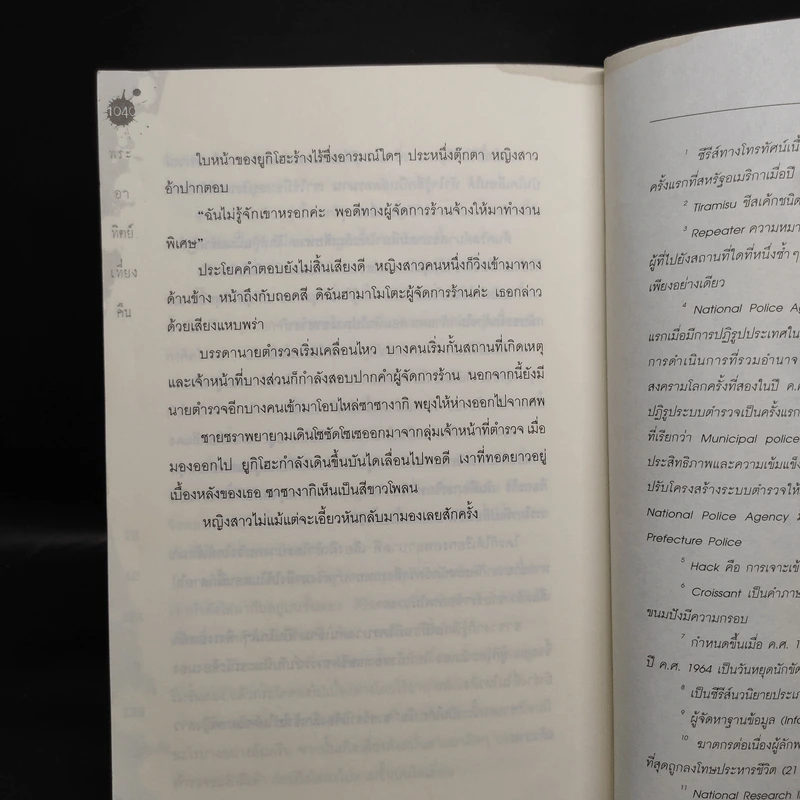 1040
พระ
อา
ทิตย์
เที่ยง
คืน
ใบหน้าของยูกิโฮะร้างไร้ซึ่งอารมณ์ใดๆ ประหนึ่งตุ๊กตา หญิงสาว
อ้าปากตอบ
“ฉันไม่รู้จักเขาหรอกค่ะ พอดีทางผู้จัดการร้านจ้างให้มาทำงาน
พิเศษ”
ประโยคคำตอบยังไม่สิ้นเสียงดี หญิงสาวคนหนึ่งก็วิ่งเข้ามาทาง
ด้านข้าง หน้าถึงกับถอดสี ดิฉันฮามาโมโตะผู้จัดการร้านค่ะ เธอกล่าว
ด้วยเสียงแหบพร่า
บรรดานายตำรวจเริ่มเคลื่อนไหว บางคนเริ่มกั้นสถานที่เกิดเหตุ
และเจ้าหน้าที่บางส่วนก็กำลังสอบปากคำผู้จัดการร้าน นอกจากนี้ยังมี
นายตำรวจอีกบางคนเข้ามาโอบไหล่ซาซางากิ พยุงให้ห่างออกไปจากศพ
ชายชราพยายามเดินโซซัดโซเซออกมาจากกลุ่มเจ้าหน้าที่ตำรวจ เมื่อ
มองออกไป ยูกิโฮะกำลังเดินขึ้นบันไดเลื่อนไปพอดี เงาที่ทอดยาวอยู่
เบื้องหลังของเธอ ซาซางากิเห็นเป็นสีขาวโพลน
หญิงสาวไม่แม้แต่จะเอี้ยวหันกลับมามองเลยสักครั้ง
1 ซีรีส์ทางโทรทัศน์เนื้
ครั้งแรกที่สหรัฐอเมริกาเมื่อปี
2 Tiramisu ชีสเค้กชนิด
3 Repeater ความหมา
ผู้ที่ไปยังสถานที่ใดที่หนึ่งซ้ำๆ
เพียงอย่างเดียว
4 National Police Ag
แรกเมื่อมีการปฏิรูปประเทศใน
การดำเนินการที่รวมอำนาจ
สงครามโลกครั้งที่สองในปี ค.ศ.
ปฏิรูประบบตำรวจเป็นครั้งแรก
ที่เรียกว่า Municipal police
ประสิทธิภาพและความเข้มแข็ง
ปรับโครงสร้างระบบตำรวจให้
National Police Agency
Prefecture Police
5 Hack คือ การเจาะเข้
6 Croissant เป็นคำภาษ
ขนมปังมีความกรอบ
7 กำหนดขึ้นเมื่อ ค.ศ. 1
ปี ค.ศ. 1964 เป็นวันหยุดนักขัต
8 เป็นซีรีส์นวนิยายประเภ
9 ผู้จัดหาฐานข้อมูล (Info
10 ฆาตกรต่อเนื่องผู้ลักพ
ที่สุดถูกลงโทษประหารชีวิต (21
11 National Research I